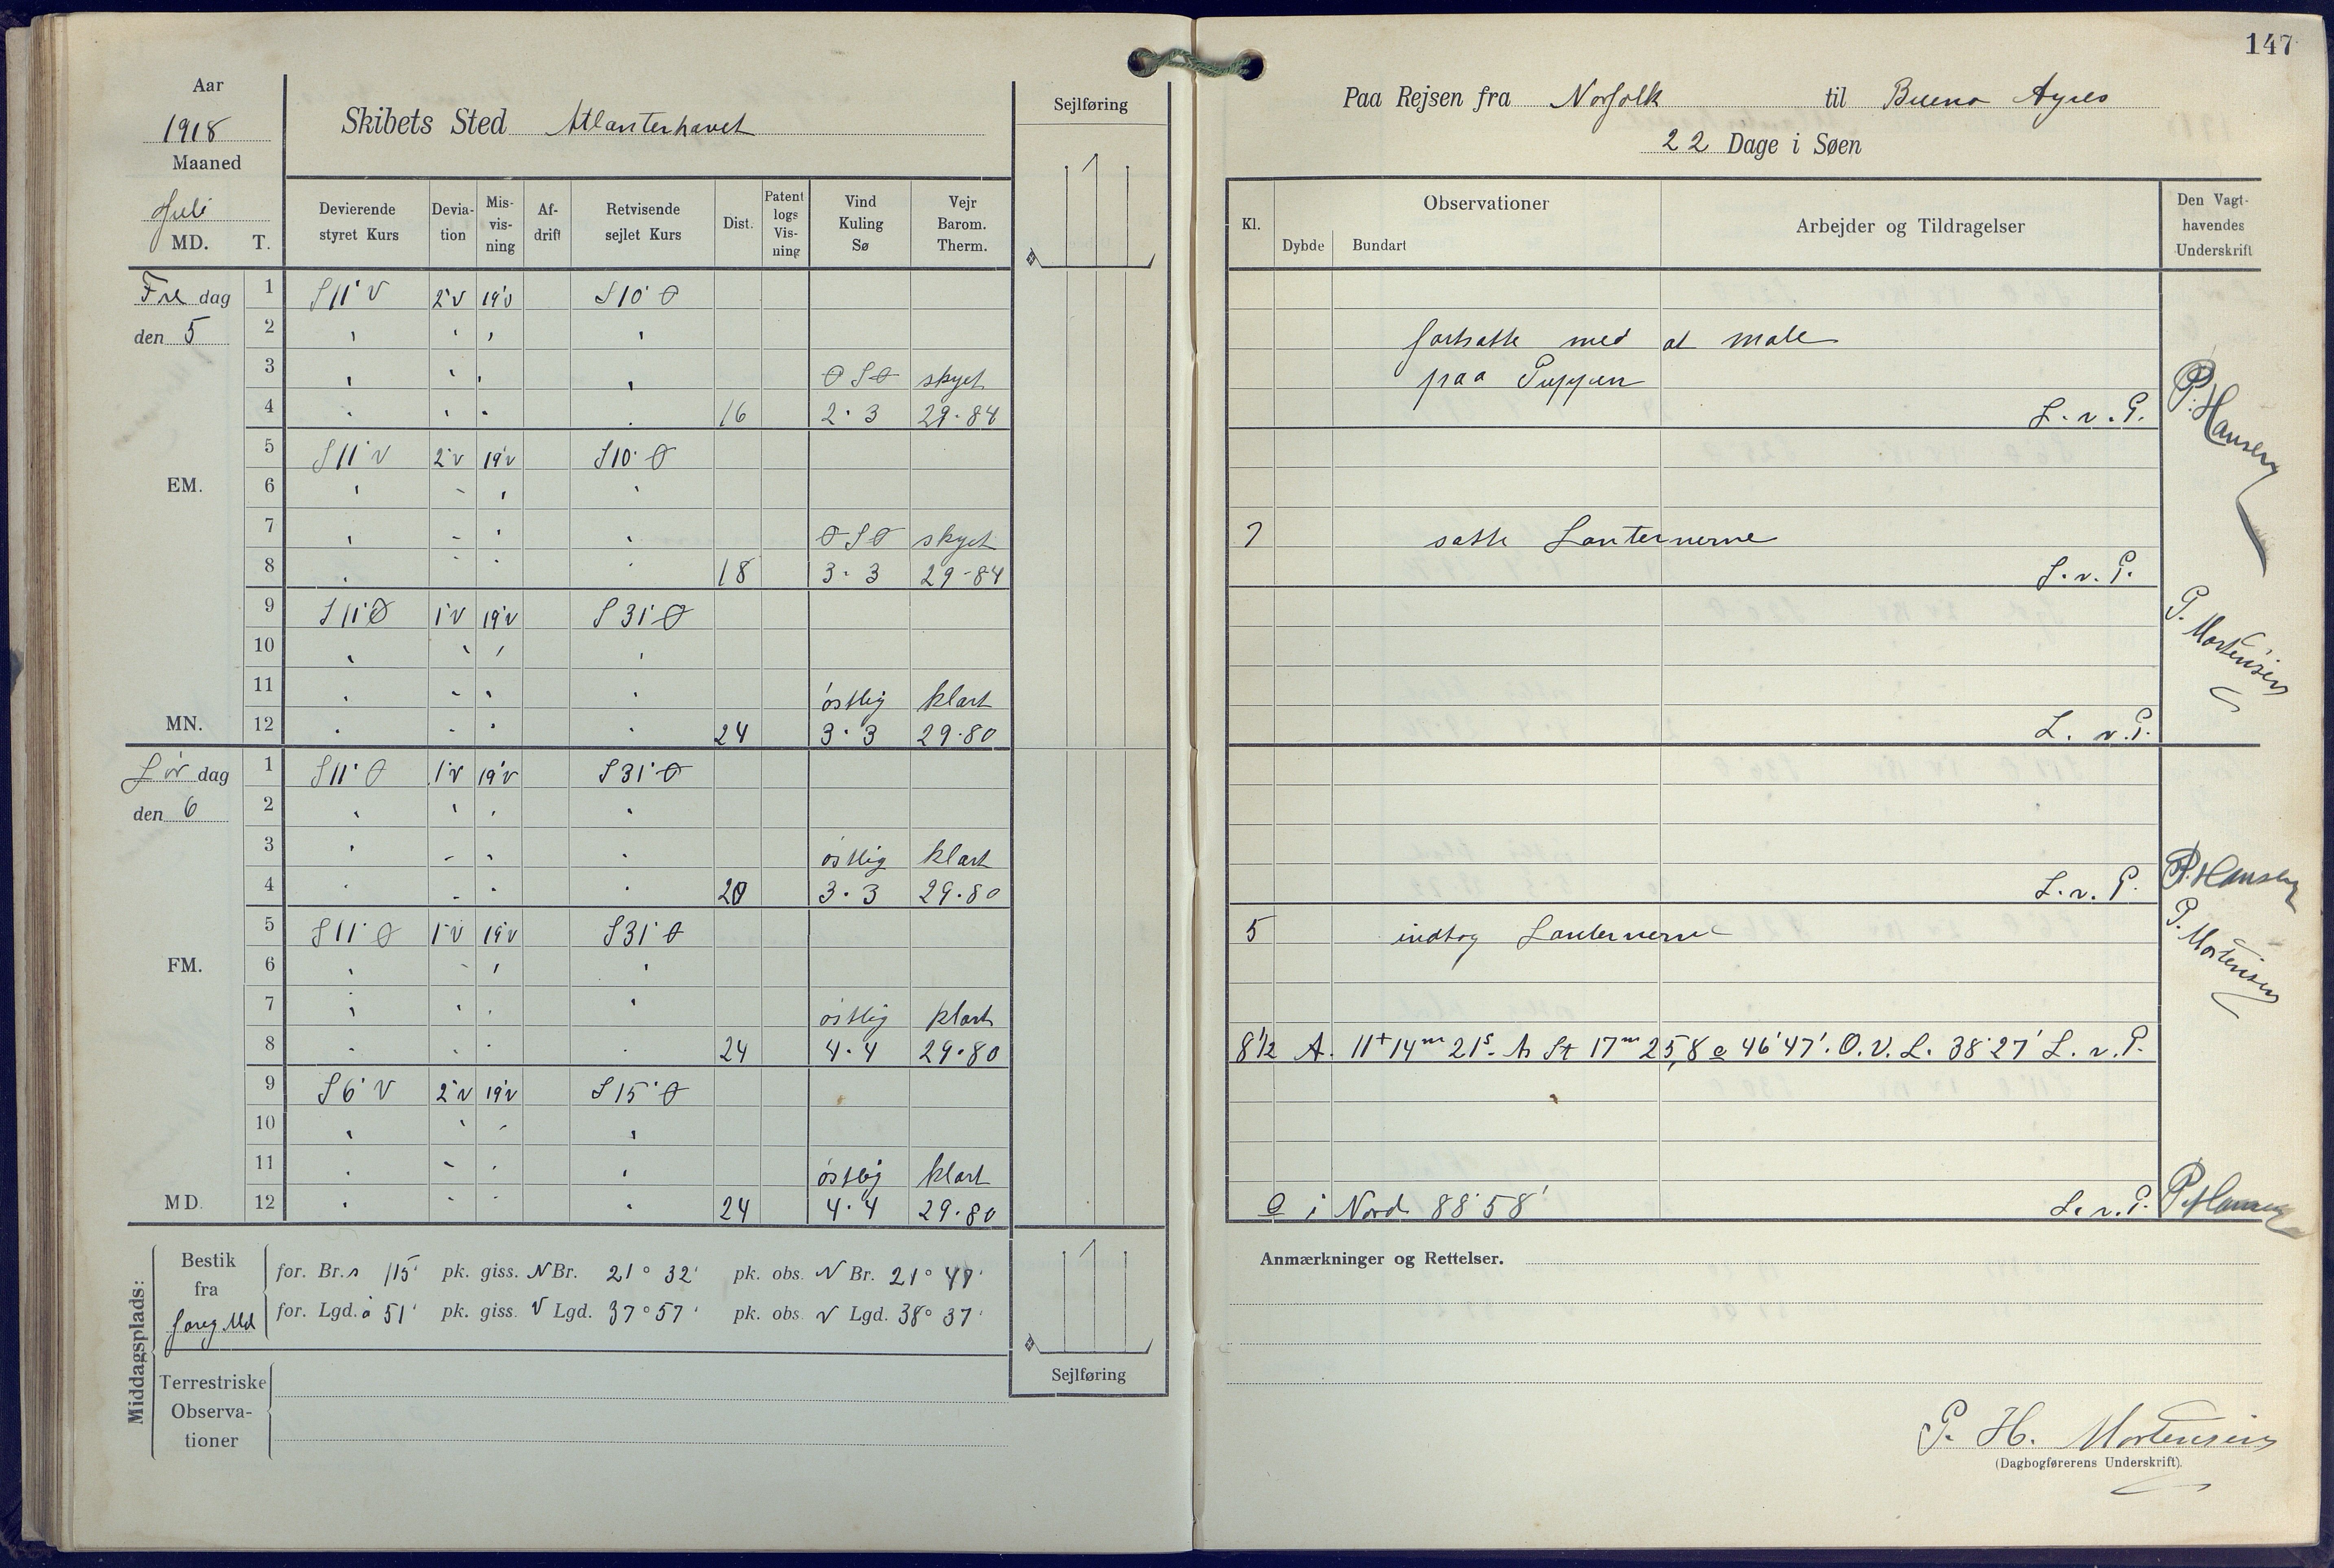 147
Aar
1918
Maaned
Juli
MD. T.
Skibets Sted Atlanterhavet
Sejlføring
Paa Rejsen fra Norfolk til Bueno Ayres
22 Dage i Søen
Devierende styret Kurs
Devia-tion
Mis-vis-ning
Af-drift
Retvisende sejlet Kurs
Dist.
Patent logs Vis-ning
Vind Kuling Sø
Vejr Barom. Therm.
Kl.
Observationer
Dybde Bundart
Arbejder og Tildragelser
Den Vagt-havendes Underskrift
Fre dag 1 S11°V 2°V 19°V S10°Ø
den 5 2 " " " " fortsatte med at male
3 " " " " ØSØ skyet paa Puppen
4 " " " " 16 2·3 29·84 L. v. P. P. Hansen
5 S11°V 2°V 19°V S10°Ø
EM. 6 " " " "
7 " " " " ØSØ skyet 7 satte Lanternerne
8 " " " " 18 3·3 29·84 L. v. P.
9 S11°Ø 1°V 19°V S31°Ø P. Mortensen
10 " " " "
11 " " " " østlig klart
MN. 12 " " " " 24 3·3 29·80 L. v. P.
Lør dag 1 S11°Ø 1°V 19°V S31°Ø
den 6 2 " " " "
3 " " " " østlig klart
4 " " " " 20 3·3 29·80 L. v. P. P. Hansen
5 S11°Ø 1°V 19°V S31°Ø 5 indtog Lanternerne P. Mortensen
FM. 6 " " " "
7 " " " " østlig klart
8 " " " " 24 4·4 29·80 8½ A. 11t 14m 21s. St 17m 25,8 46°47'. O. V. L. 38°27' L. v. P.
9 S6°V 2°V 19°V S15°Ø
10 " " " "
11 " " " " østlig klart
MD. 12 " " " " 24 4·4 29·80 i Nord 88°58' L. v. P. P. Hansen
Middagsplads:
Bestik fra foreg. Md
for. Br. s 115' pk. giss. N Br. 21° 32' pk. obs. N Br. 21° 47'
for. Lgd. ø 51' pk. giss. V Lgd. 37° 57' pk. obs. V Lgd. 38° 37'
Terrestriske Observa-tioner
Sejlføring
Anmærkninger og Rettelser.
P. H. Mortensen
(Dagbogførerens Underskrift).